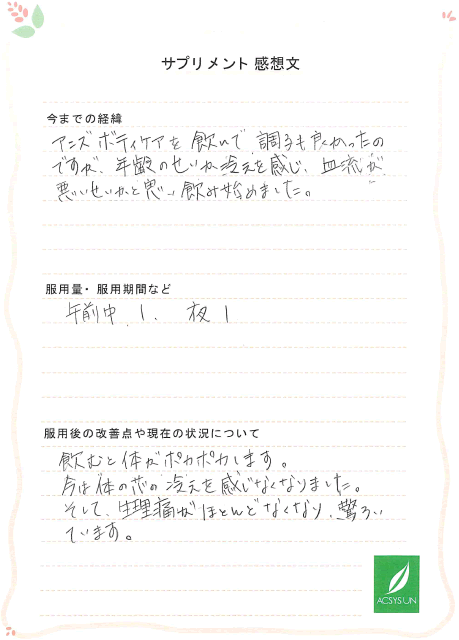 サプリメント 感想文
今までの経緯
アンズ ボディケアを 飲いで 調子も良かったの
ですが、年齢のせいか冷えを感じ、血流が
悪いせいかと思い 飲み始めました。
服用量・服用期間など
午前中 1. 夜 1
服用後の改善点や現在の状況について
飲むと体がポカポカします。
今は体の芯の冷えを感じなくなりました。
そして、生理痛がほとんどなくなり、驚い
ています。
ACSYSUN